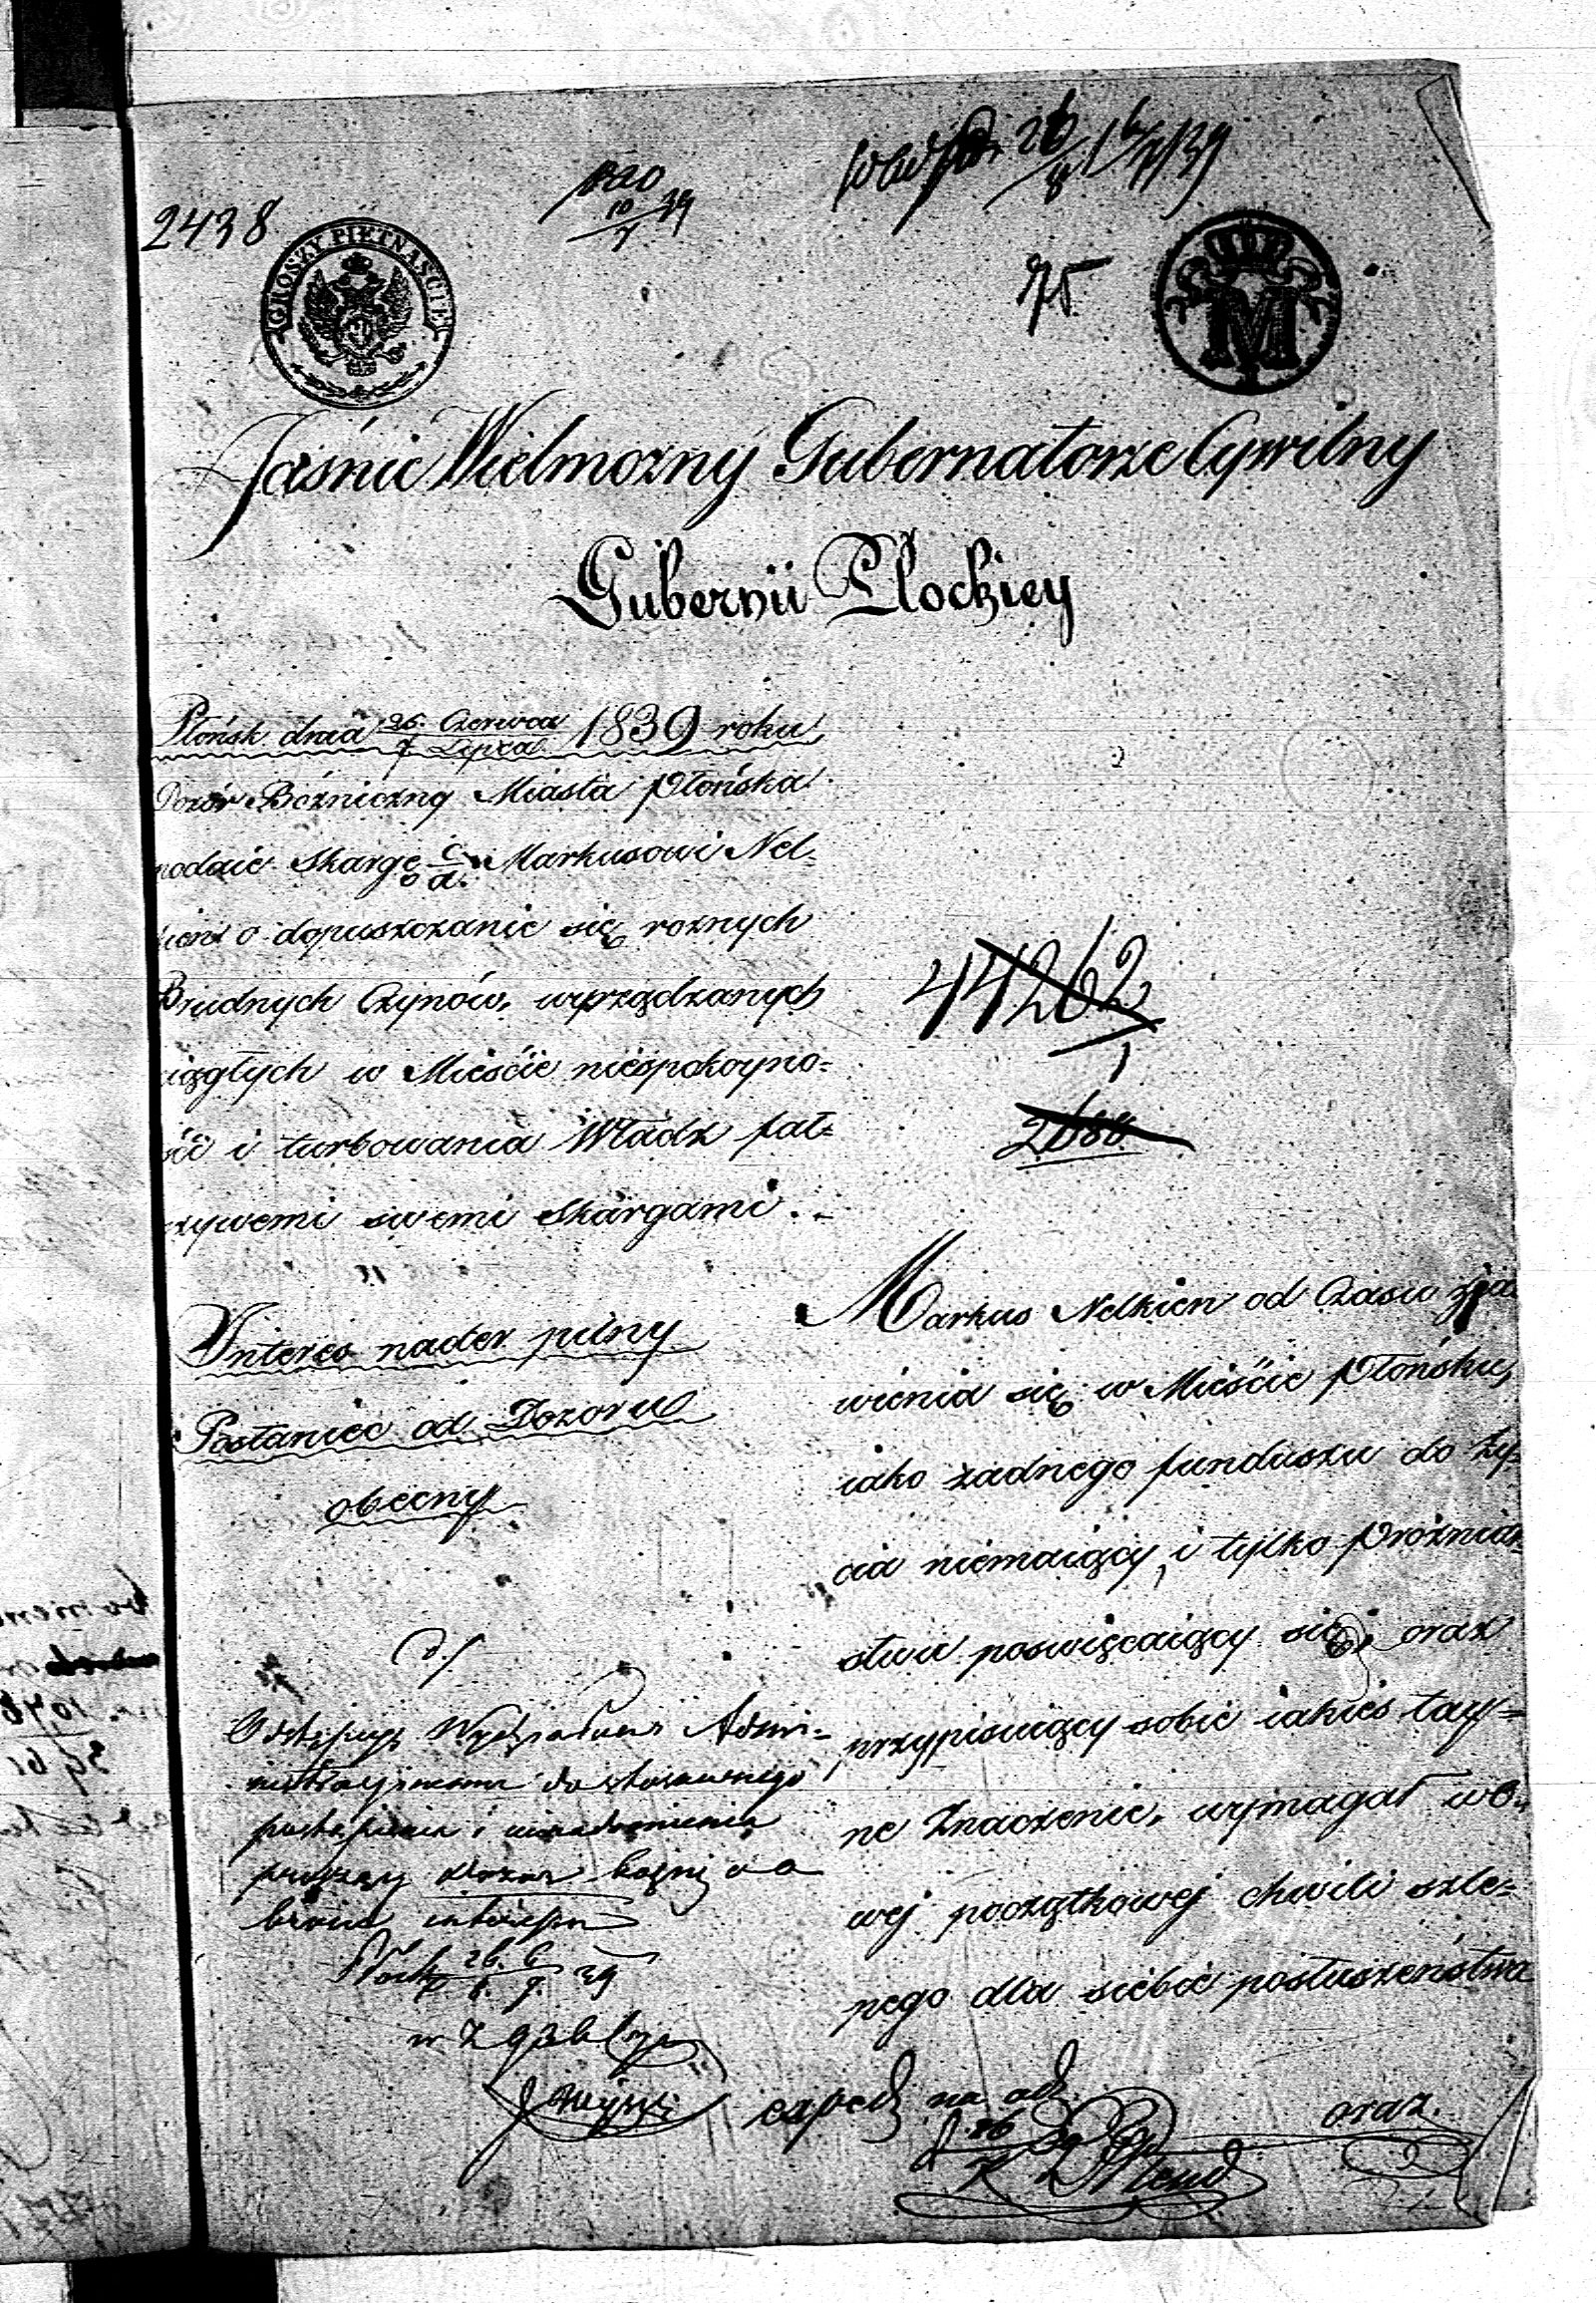 2438
GROSZY PIĘTNAŚCIE
75
M
Jaśnie Wielmozny Gubernatorze Cywilny
Gubernii Płockiey
Płońsk dnia 25. Czerwca / 7 Lipca 1839 roku
Dozór Bózniczny Miasta Płońska
podaie Skargę c/a Markusowi Nel-
kien o dopuszczanie się roznych
Brudnych Czynów, wyrządzanych
ciągłych w Mieście niespokoyno-
ści i turbowania Władz fał-
szywemi swemi Skargami.
44262
1
2688
Interes nader pilny
Posłaniec od Dozoru
obecny
Markus Nelkien od Czasu zja
wienia się w Mieście Płońsku,
iako zadnego funduszu do Ży-
cia niemaiący, i tylko Prózniac-
stwu poswięcaiący się, oraz
przypisuiący sobie iakieś tay-
ne Znaczenie, wymagał w o-
wej początkowej chwili szle-
pego dla siebie posłuszeństwa
oraz
Odstępuję Wydziałowi Admi-
nistracyjnemu do stosownego
postąpienia i uwiadomienia
Dozor
Płock 26. 6 / 8. 7. 39
exped na odz.